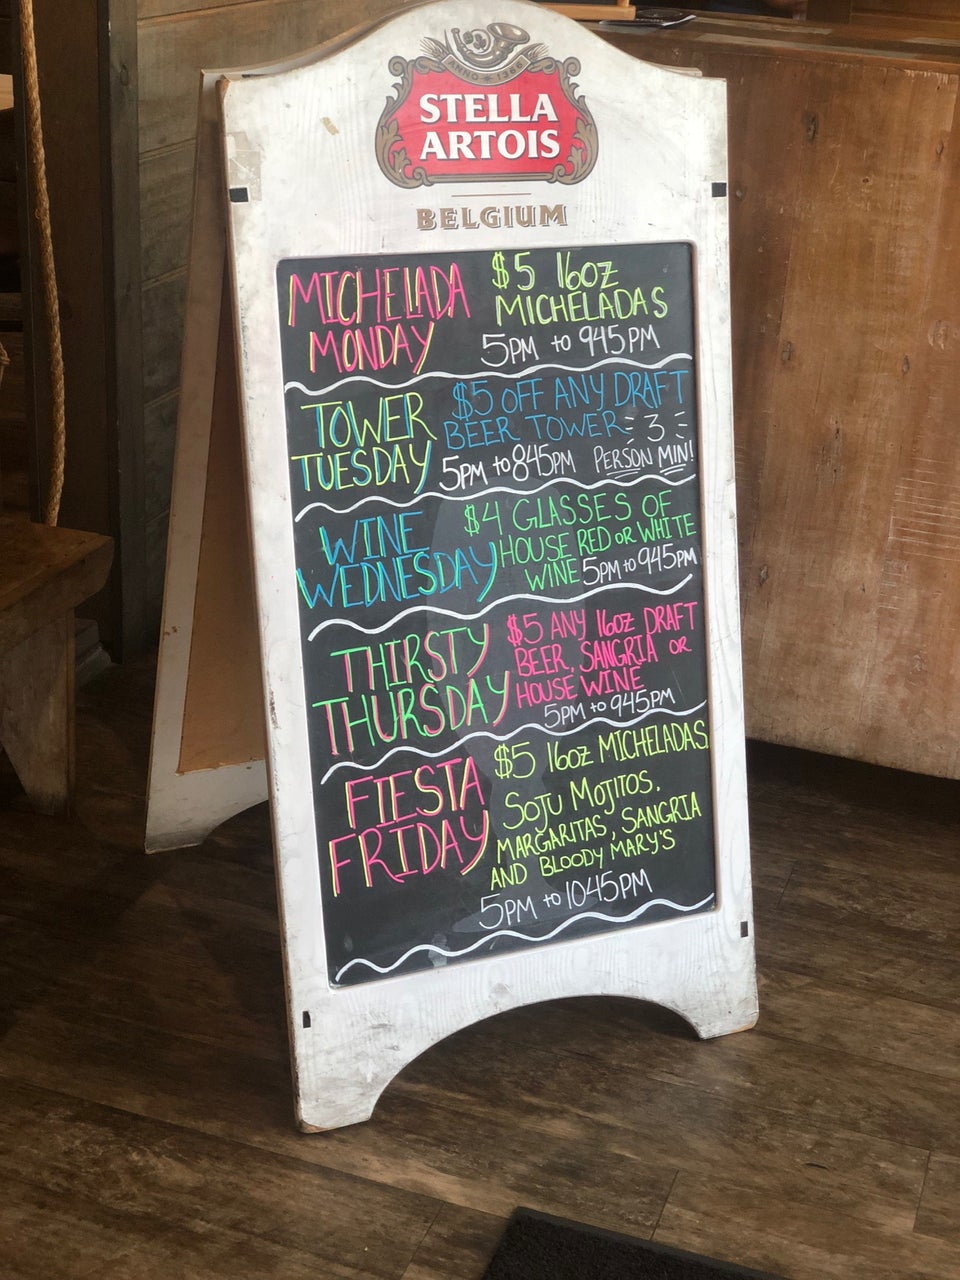 ANNO • 1366
STELLA
ARTOIS
BELGIUM
MICHELADA
MONDAY
$5 16oz
MICHELADAS
5PM to 945PM
TOWER
TUESDAY
$5 OFF ANY DRAFT
BEER TOWER 3
5PM to 845PM PERSON MIN!
WINE
WEDNESDAY
$4 GLASSES OF
HOUSE RED OR WHITE
WINE 5PM to 945PM
THIRSTY
THURSDAY
$5 ANY 16oz DRAFT
BEER, SANGRIA OR
HOUSE WINE
5PM to 945PM
FIESTA
FRIDAY
$5 16oz MICHELADAS,
SOJU MOJITOS,
MARGARITAS, SANGRIA
AND BLOODY MARY'S
5PM to 1045PM